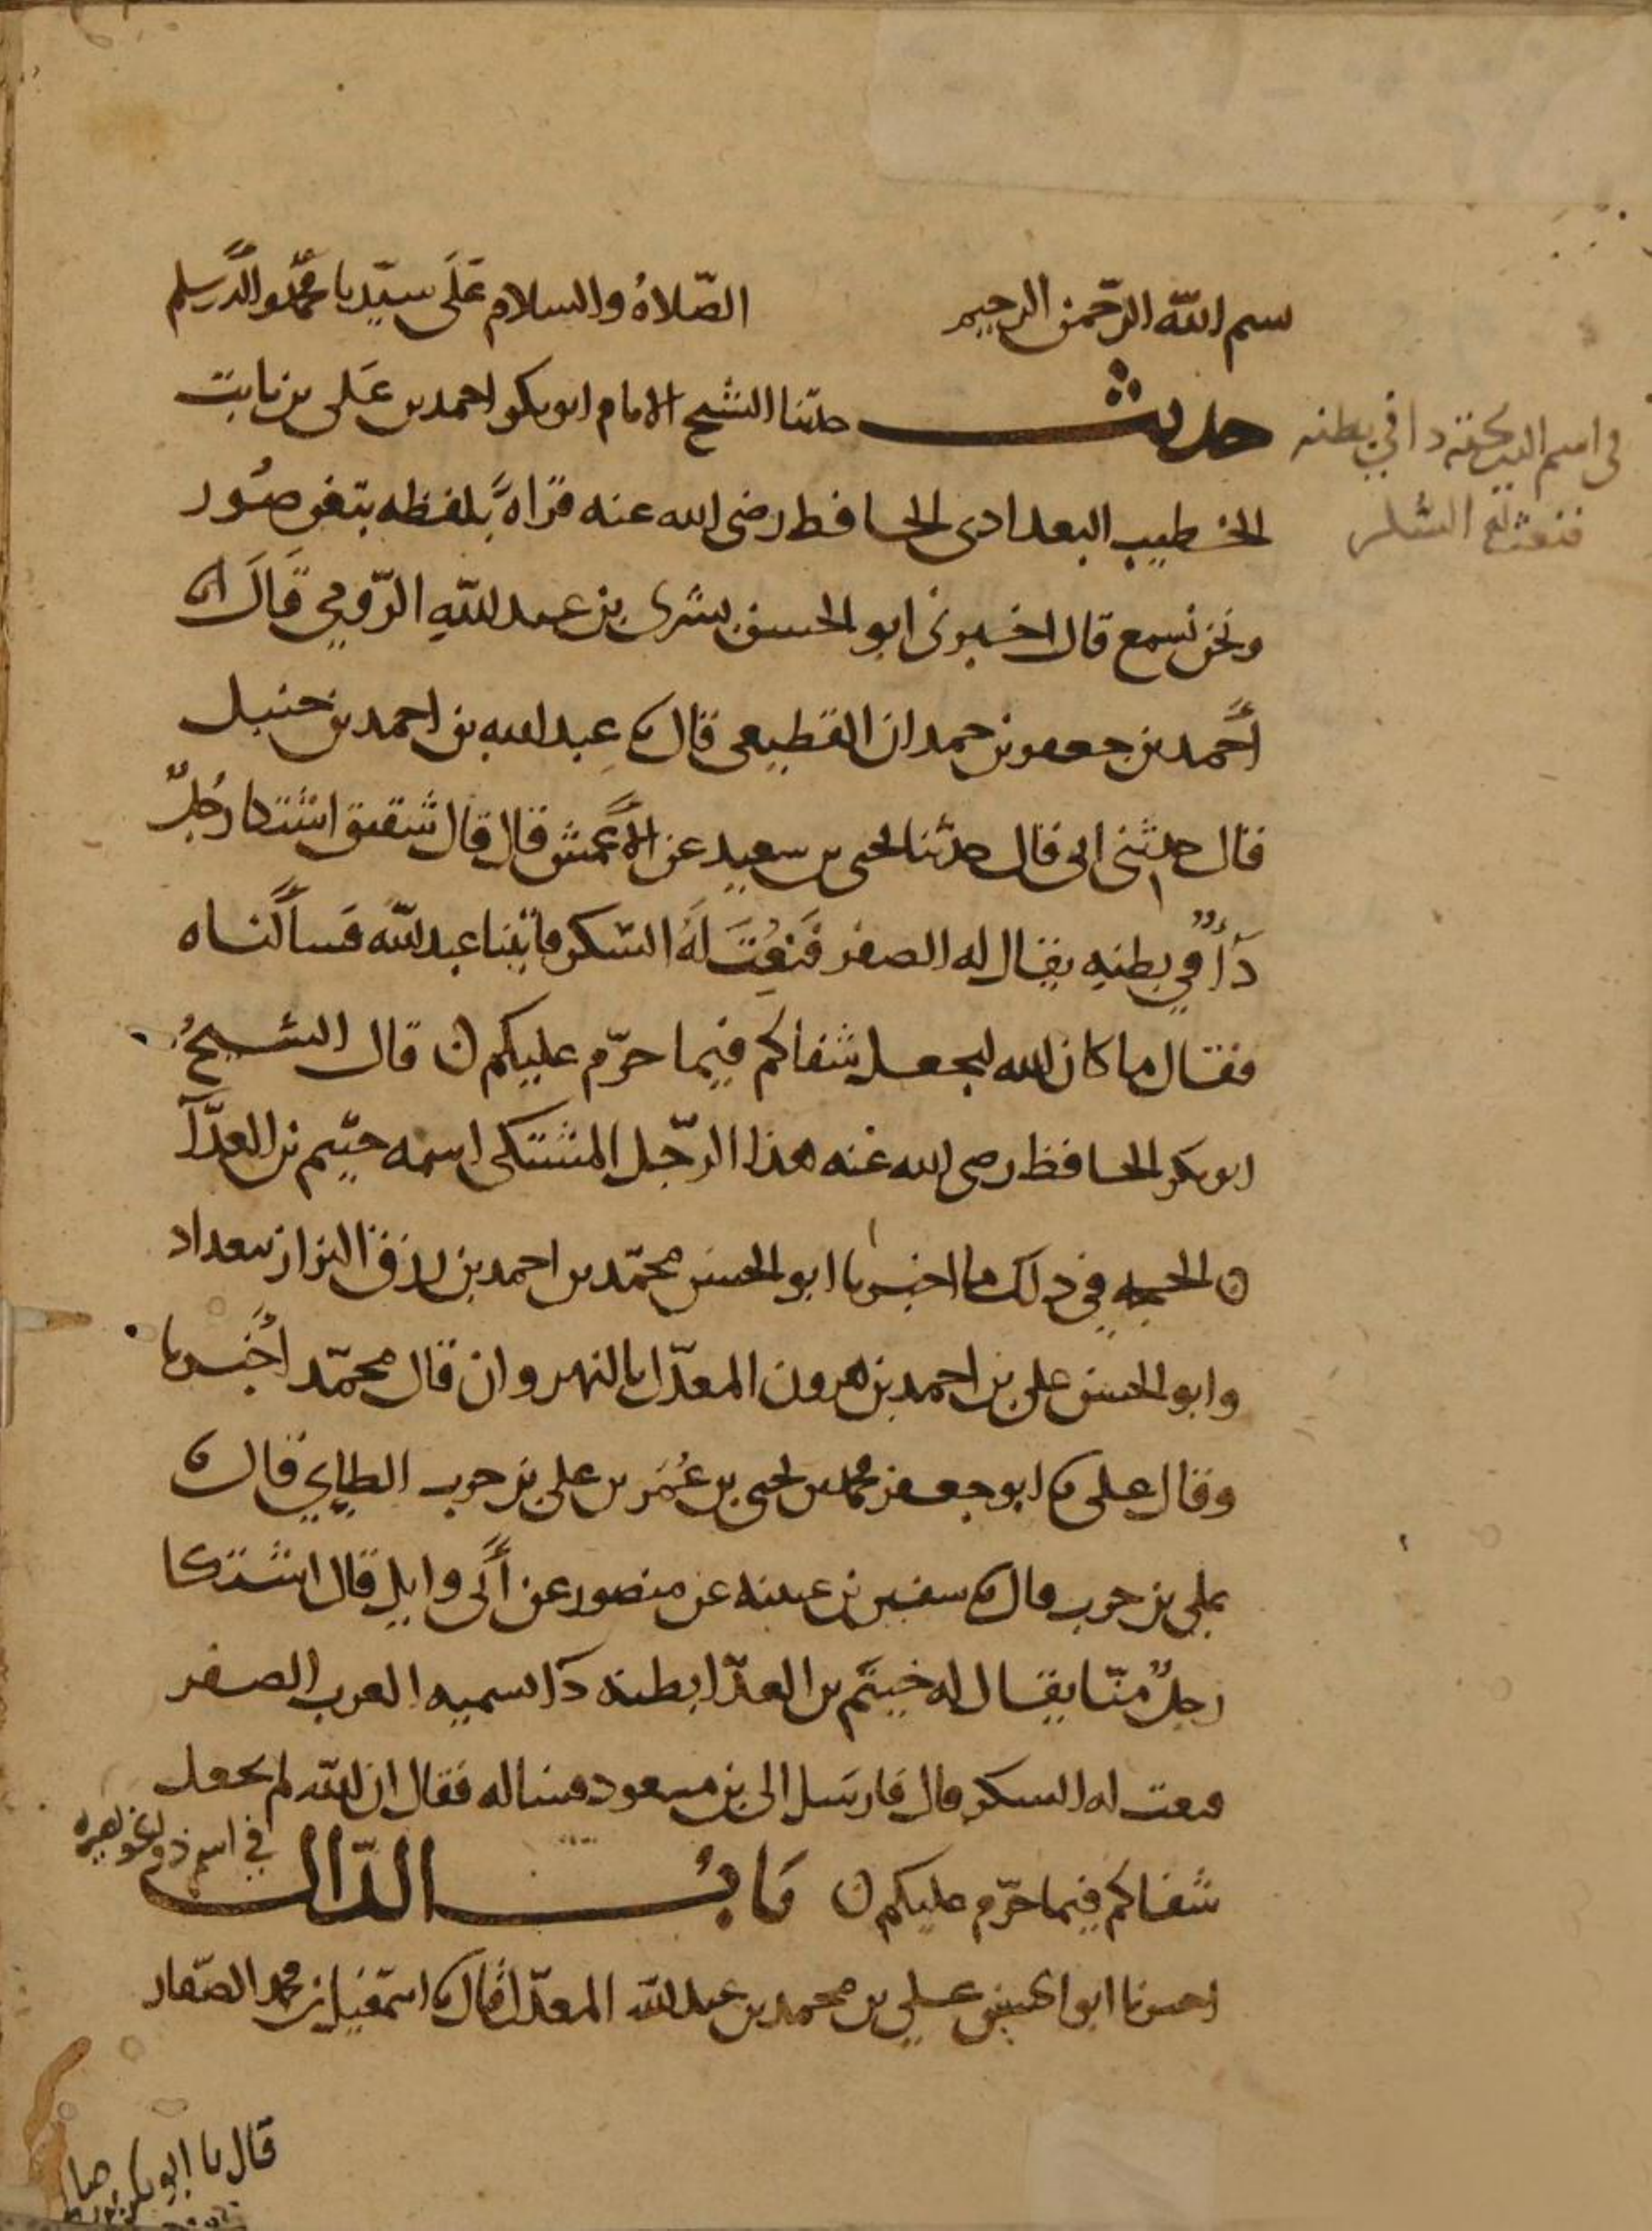 بسم الله الرحمن الرحيم الصّلاةُ والسلام عَلَى سيّدنا محمّد واله وسلم
حديث حدثنا الشيخ الامام ابو بكر احمد بن عَلى بن ثابت
في اسم الذي داء في بطنه
فنعت له السكر
الخطيب البغدادى الحافظ رضى الله عنه قراةً بلفظه بثغر صُور
ونحن نسمع قال اخبرنى ابو الحسن بشرى بن عبد اللهِ الرّومي قَالَ انا
أحمد بن جعفر بن حمدان القطيعى قال نا عبد الله بن احمد بن حنبل
قال حدثنى ابى قال حدّثنا يحيى بن سعيد عن الأعمش قال قال شقيق اشتكا رجُلٌ
دآءً في بطنِهِ يقال له الصفر فَنُعِتَ لَهُ السّكر فاتينا عبد الله فَسأَلناه
فقال ما كان الله ليجعل شفاكم فيما حرّم عليكم ن قال الشيخُ
ابو بكر الحافظ رضى الله عنه هذا الرّجل المشتكى اسمه خثيم بن العدّآ
ن الحجه في ذلك ما اخبرنا ابو الحسن محمّد بن احمد بن رزق البزاز ببغداد
وابو الحسن على بن احمد بن هرون المعدّل بالنهروان قال محمّد أخبرنا
وقال على نا ابو جعفر محمد بن يحيى بن عُمَر بن على بن حرب الطايي قال نا
على بن حرب قال نا سفين بن عيينه عن منصور عن أبى وايل قال اشتكا
رجلٌ منّا يقال له خيثم بن العدّا بطنه دآ تسميه العرب الصفر
فنعت له السكر قال فارسَل الى بن مسعود فساله فقال ان الله لم يجعل
شفاكم فيما حرّم عليكم ن بَابُ الدّال في اسم ذو
اخبرنا ابو الحسين على بن محمد بن عبد الله المعدّل قال نا اسمعيل بن محمد الصّفار
قال نا ابو بكر